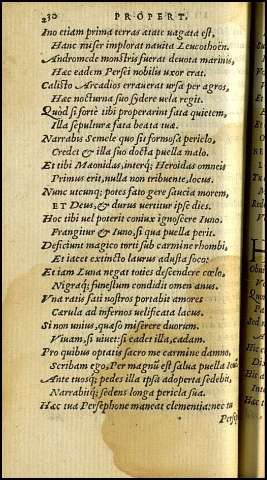 230 PROPERT.
Ino etiam prima terras ætate uagata est.
Hanc miser implorat nauita Leucothoën.
Andromede monstris fuerat deuota marinis,
Hæc eadem Persei nobilis uxor erat.
Calisto Arcadios errauerat ursa per agros,
Hæc nocturna suo sydere uela regit.
Quòd si fortè tibi properarint fata quietem,
Illa sepulturæ fata beata tuæ.
Narrabis Semele quo sit formosa periclo,
Credet & illa suo docta puella malo.
Et tibi Mæonidas, interq; Heroidas omneis
Primus erit, nulla non tribuente, locus.
Nunc utcunq; potes fato gere saucia morem,
ET Deus, & durus uertitur ipse dies.
Hoc tibi uel poterit coniux ignoscere Iuno.
Frangitur & Iuno, si qua puella perit.
Deficiunt magico torti sub carmine rhombi,
Et iacet extincto laurus adusta foco:
Et iam Luna negat toties descendere cœlo,
Nigraq; funestum condidit omen auus.
Vna ratis fati nostros portabit amores
Cærula ad infernos uelificata lacus.
Si non unius, quæso miserere duorum.
Viuam, si uiuet: si cadet illa, cadam.
Pro quibus optatis sacro me carmine damno,
Scribam ego, Per magnũ est salua puella Iouẽ
Ante tuosq; pedes illa ipsa adoperta sedebit,
Narrabitq; sedens longa pericla sua.
Hæc tua Persephone maneat clementia: nec tu
Perse